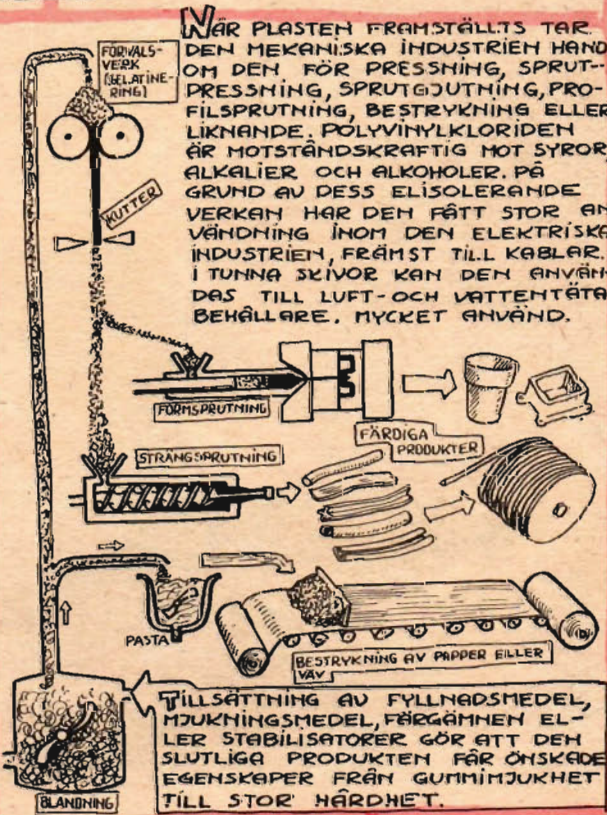 NÄR PLASTEN FRAMSTÄLLTS TAR
DEN MEKANISKA INDUSTRIEN HAND
OM DEN FÖR PRESSNING, SPRUT-
PRESSNING, SPRUTGJUTNING, PRO-
FILSPRUTNING, BESTRYKNING ELLER
LIKNANDE. POLYVINYLKLORIDEN
ÄR MOTSTÅNDSKRAFTIG MOT SYROR,
ALKALIER OCH ALKOHOLER. PÅ
GRUND AV DESS ELISOLERANDE
VERKAN HAR DEN FÅTT STOR AN
VÄNDNING INOM DEN ELEKTRISKA
INDUSTRIEN, FRÄMST TILL KABLAR.
I TUNNA SKIVOR KAN DEN ANVÄN-
DAS TILL LUFT- OCH VATTENTÄTA
BEHÅLLARE. MYCKET ANVÄND.
FÖRVALS-
VERK
(GELATINE-
RING)
KUTTER
FORMSPRUTNING
STRÄNGSPRUTNING
FÄRDIGA
PRODUKTER
PASTA
BESTRYKNING AV PAPPER ELLER
VÄV
TILLSÄTTNING AV FYLLNADSMEDEL,
MJUKNINGSMEDEL, FÄRGÄMNEN EL-
LER STABILISATORER GÖR ATT DEN
SLUTLIGA PRODUKTEN FÅR ÖNSKADE
EGENSKAPER FRÅN GUMMIMJUKHET
TILL STOR HÅRDHET.
BLANDNING